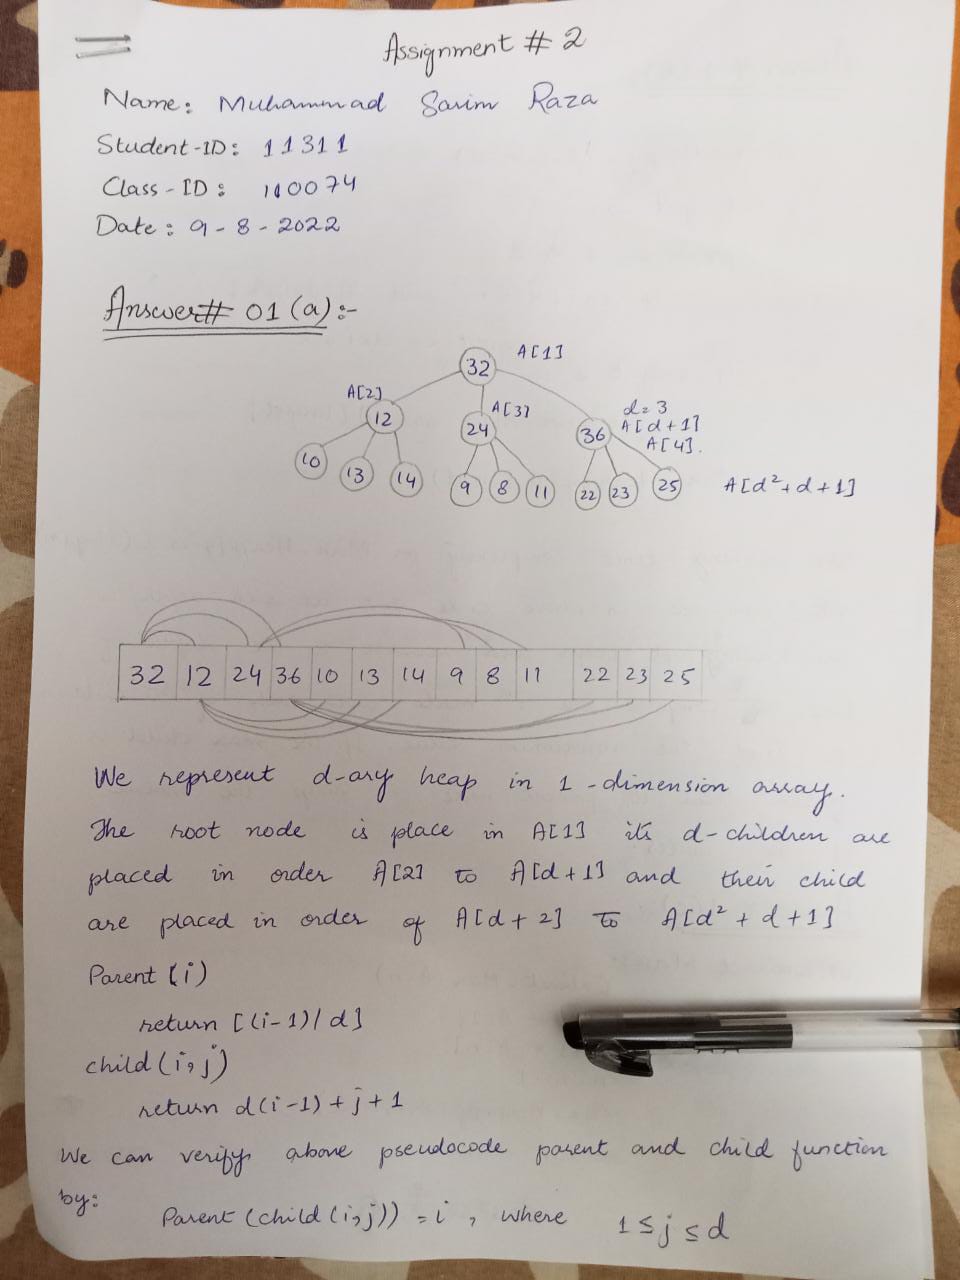 Assignment # 2
Name: Muhammad Sarim Raza
Student-ID: 11311
Class-ID: 110074
Date: 9-8-2022
Answer# 01 (a):-
32 A[1]
A[2] 12
A[3] 24
d=3
36 A[d+1]
A[4].
10 13 14 9 8 11 22 23 25 A[d²+d+1]
32 12 24 36 10 13 14 9 8 11 22 23 25
We represent d-ary heap in 1-dimension array.
The root node is place in A[1] its d-children are
placed in order A[2] to A[d+1] and their child
are placed in order of A[d+2] to A[d²+d+1]
Parent (i)
return [(i-1)/d]
child (i,j)
return d(i-1)+j+1
We can verify above pseudocode parent and child function
by:
Parent (child (i,j)) = i, where 1≤j≤d